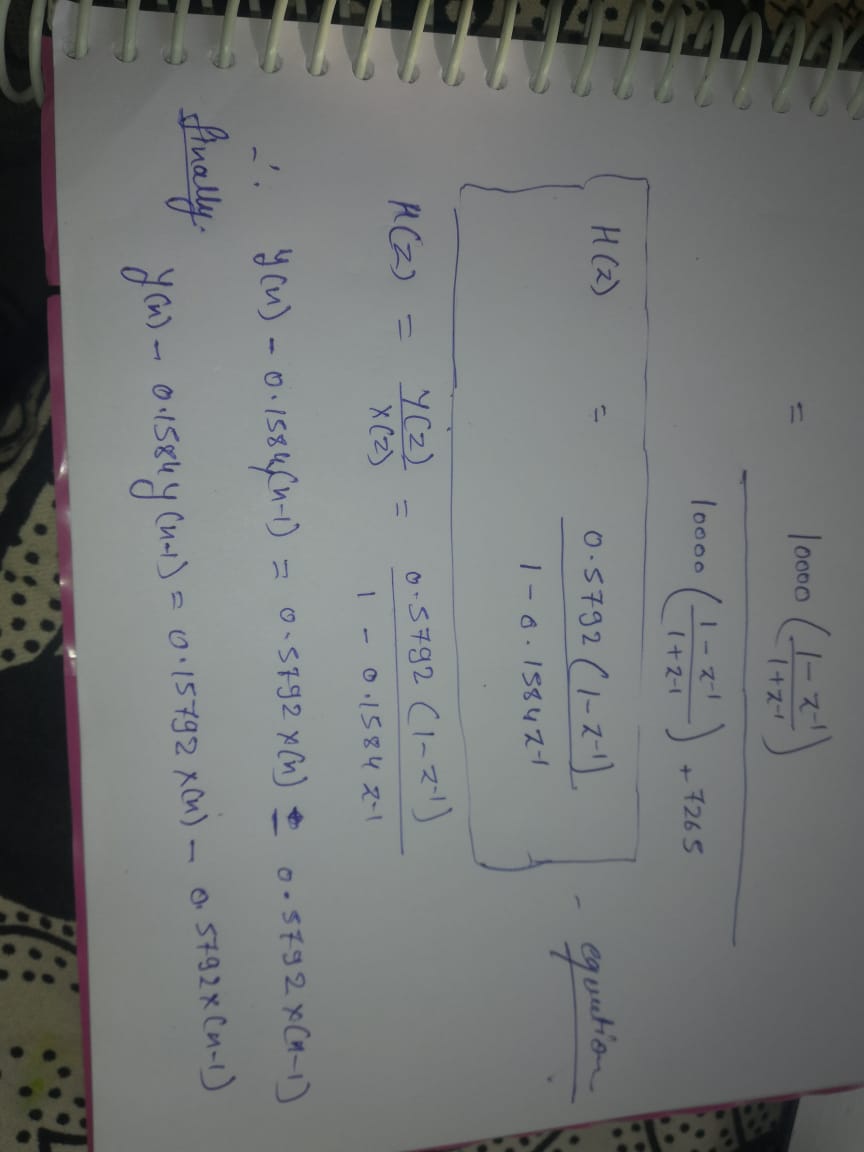 = 10000 (1 - z⁻¹ / 1 + z⁻¹)
10000 (1 - z⁻¹ / 1 + z⁻¹) + 7265
H(z) = 0.5792 (1 - z⁻¹) - equation
1 - 0.1584 z⁻¹
H(z) = Y(z) / X(z) = 0.5792 (1 - z⁻¹)
1 - 0.1584 z⁻¹
∴ y(n) - 0.1584y(n-1) = 0.5792 x(n) - 0.5792 x(n-1)
finally. y(n) - 0.1584 y(n-1) = 0.15792 x(n) - 0.5792 x(n-1)